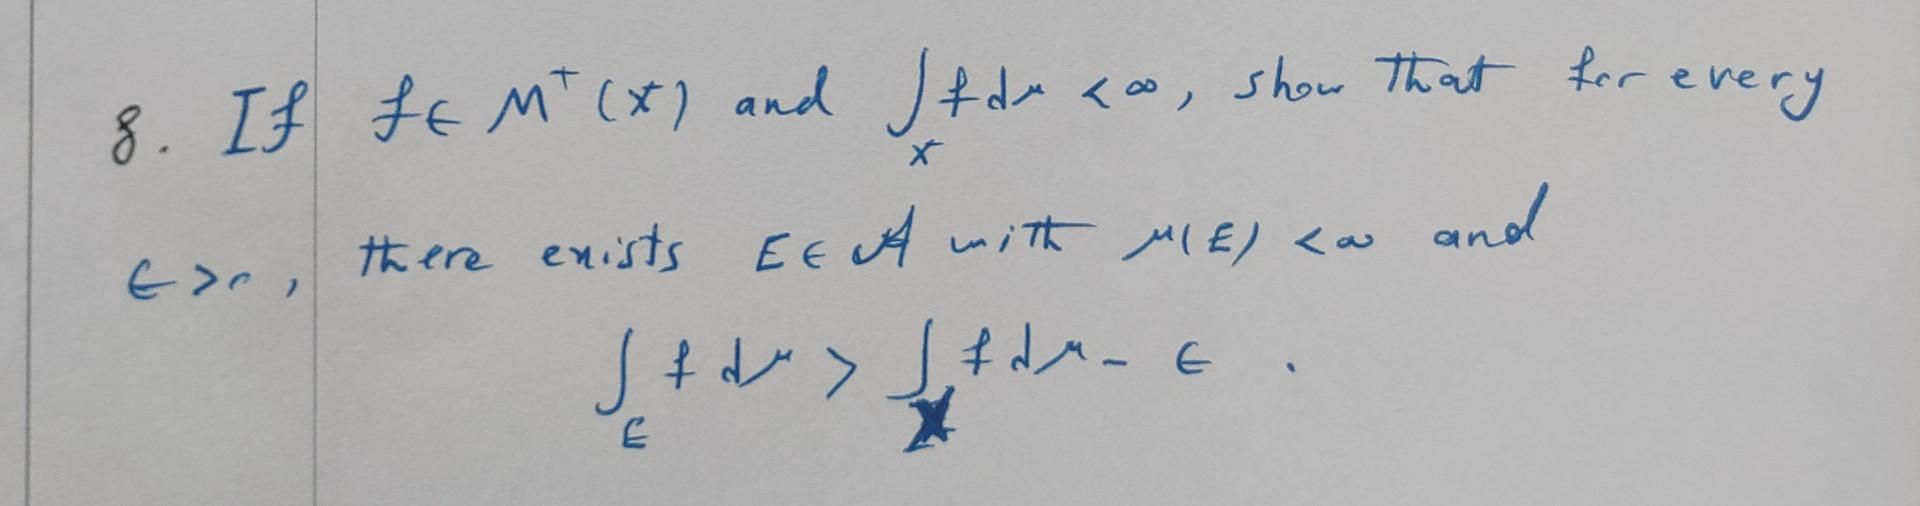 8. If f ∈ M⁺(X) and ∫_X f dμ < ∞, show that for every
ϵ > 0, there exists E ∈ A with μ(E) < ∞ and
∫_E f dμ > ∫_X f dμ - ϵ .